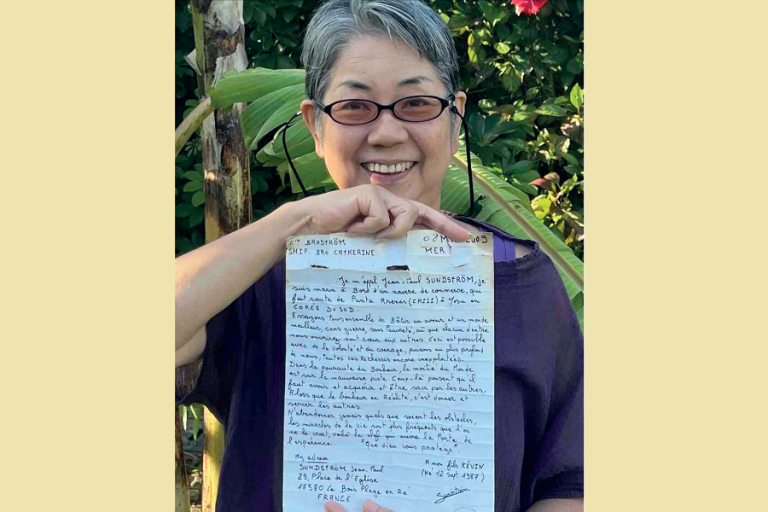 Cie BROSTRÖM 08 M 2009
SHIP: BRO CATHERINE MER
Je m'appel Jean-Paul SUNDSTRÖM, je
suis marin à Bord d'un navire de commerce, qui
fait route de Punta Arenas (CHILI) à Yosu en
CORÉE DU SUD.
Essayons tous ensemble de Bâtir un avenir et un monde
meilleur, sans guerre, sans Pauvreté, où que chacun d'entre
nous ouvrirez son cœur aux autres. Ceci est possible
avec de la volonté et du courage, puisons au plus profond
de nous, toutes ces Richesses encore inexploitées.
Dans la poursuite du Bonheur, la moitié du Monde
est sur la mauvaise piste. Ceux-là pensent qu'il
faut avoir et acquérir et être servi par les autres.
Alors que le bonheur en Réalité, c'est donner et
servir les autres.
N'abandonner jamais quels que soient les obstacles,
les miracles de la vie sont plus fréquents que l'on
ne le croit, voilà la clef qui ouvre la Porte, de
l'espérance. "Que dieu vous protège"
My adress
SUNDSTRÖM Jean-Paul
29, Place de l'Eglise
17580 Le Bois Plage en Ré
FRANCE
A mon fils KÉVIN
(Né 12 Sept. 1987)
Sundström